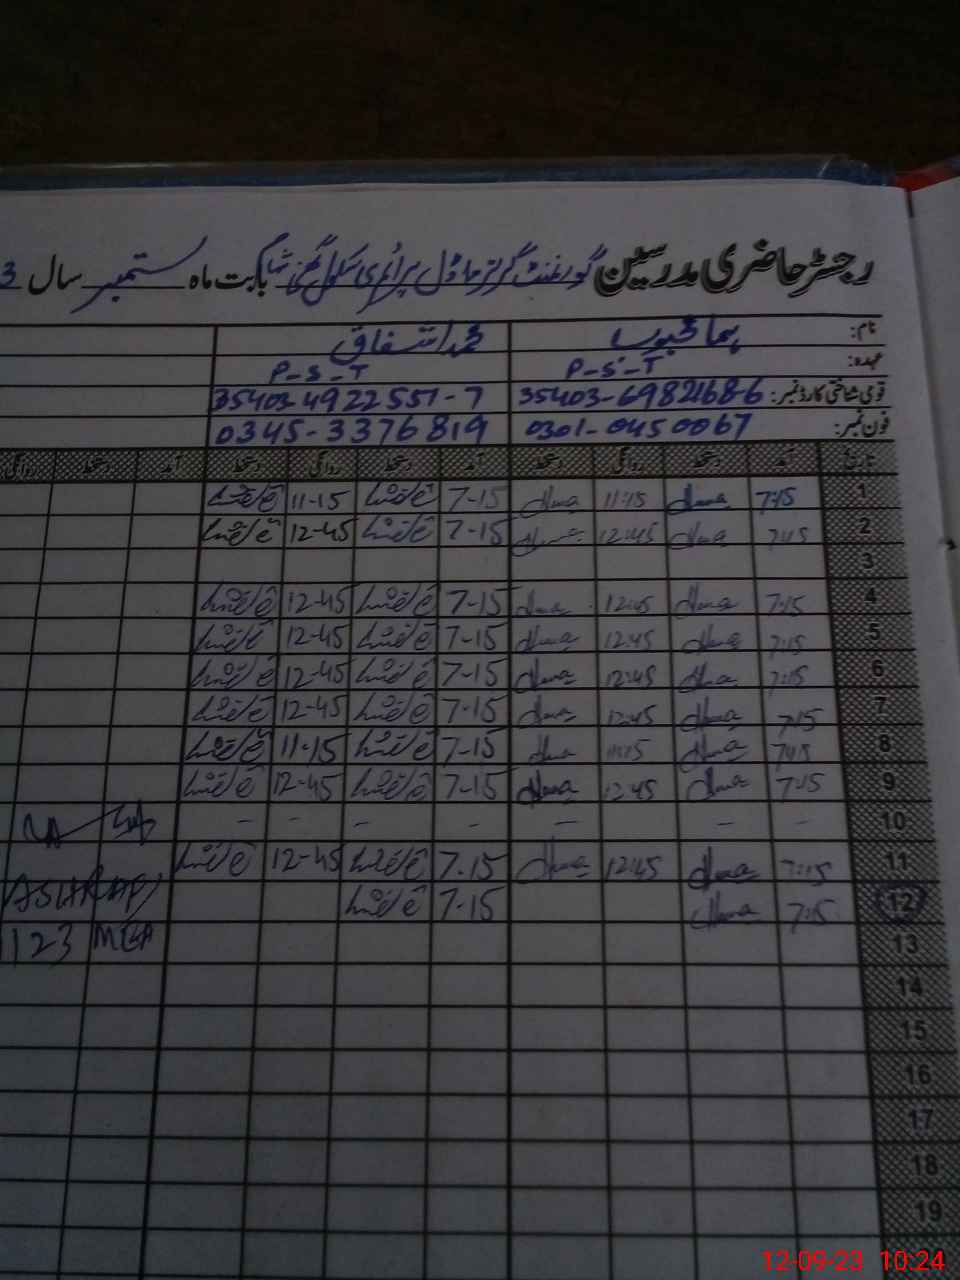 رجسٹر حاضری مدرسین گورنمنٹ گرلز ماڈل پرائمری سکول بابت ماہ ستمبر سال 3
نام: ہما محبوب محمد اشفاق
عہدہ: P-S-T P-S-T
قومی شناختی کارڈ نمبر: 35403-6982168-6 35403-4922551-7
فون نمبر: 0301-0450067 0345-3376819
تاریخ آمد دستخط روانگی دستخط آمد دستخط روانگی دستخط آمد دستخط روانگی
1 7:15 Huma 11:15 Huma 7-15 11-15
2 7:15 Huma 12:45 Huma 7-15 12-45
3
4 7:15 Huma 12:45 Huma 7-15 12-45
5 7:15 Huma 12:45 Huma 7-15 12-45
6 7:15 Huma 12:45 Huma 7-15 12-45
7 7:15 Huma 12:45 Huma 7-15 12-45
8 7:15 Huma 11:15 Huma 7-15 11-15
9 7:15 Huma 12:45 Huma 7-15 12-45
10 - - - - - - -
11 7:15 Huma 12:45 Huma 7.15 12-45
12 7:15 Huma 7-15
13 123 MEA
14
15
16
17
18
19
12-09-23 10:24